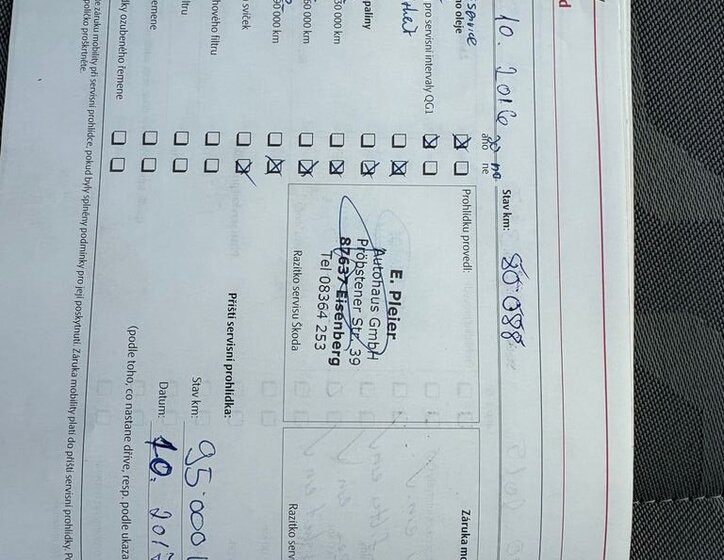 d
10. 2016
Stav km: 80.088
service
no oleje
ano ne
pro servisní intervaly QG1
paliny
30 000 km
60 000 km
90 000 km
svíček
hového filtru
ltru
emene
ky ozubeného řemene
Prohlídku provedl:
E. Pleier
Autohaus GmbH
Pröbstener Str. 39
87637 Eisenberg
Tel 08364 253
Razítko servisu Škoda
Příští servisní prohlídka:
Stav km: 95.000
Datum: 10. 201
(podle toho, co nastane dříve, resp. podle ukaza
Záruka mo
Razítko serv
e záruku mobility při servisní prohlídce, pokud byly splněny podmínky pro její poskytnutí. Záruka mobility platí do příští servisní prohlídky.
políčko proškrtněte.